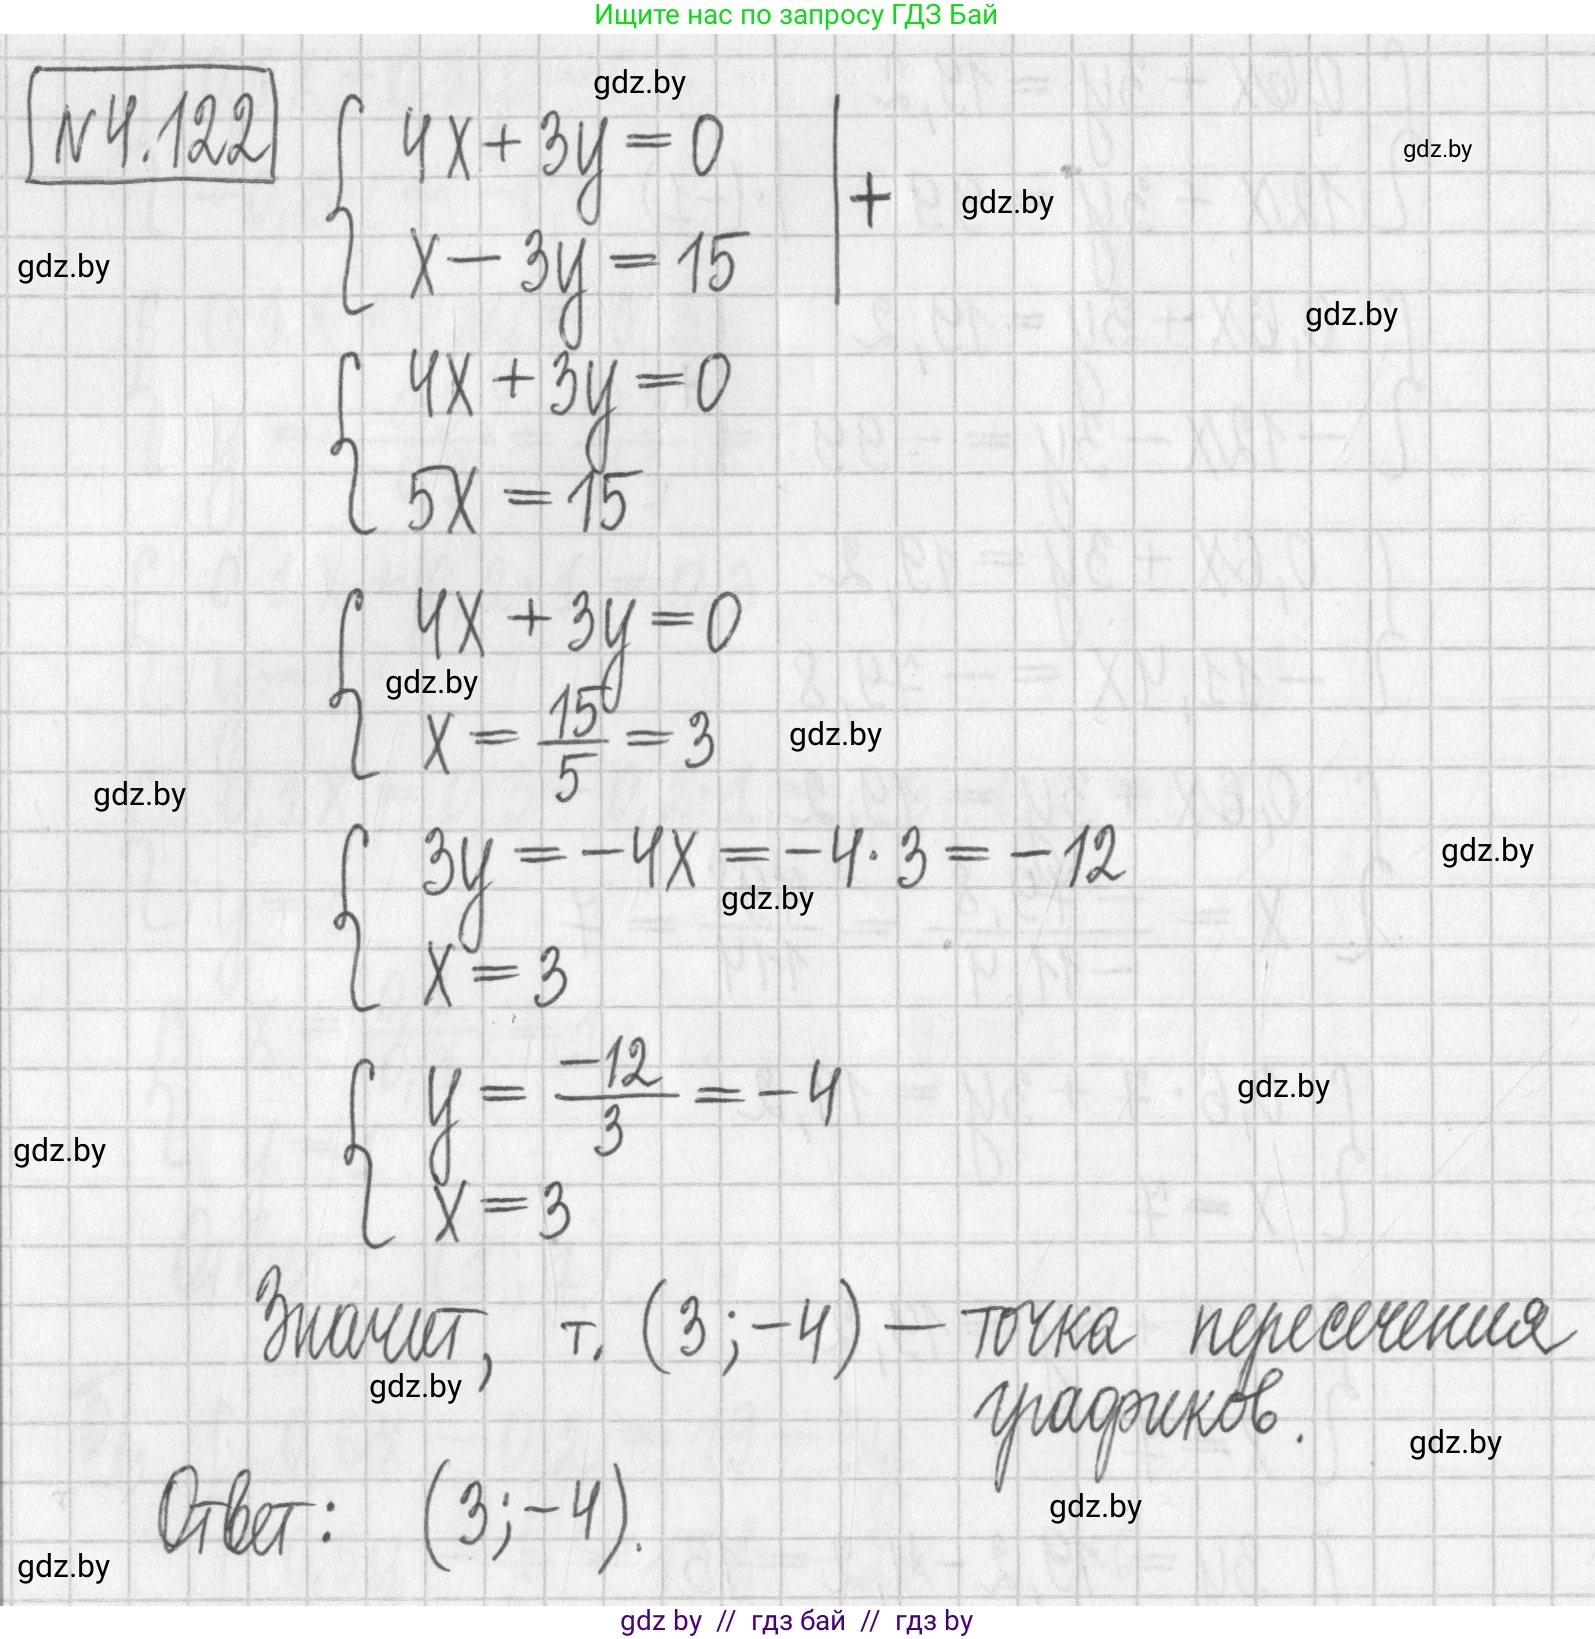 Ищите нас по запросу ГДЗ Бай
N4.122
gdz.by
4x + 3y = 0
+
gdz.by
gdz.by
x − 3y = 15
gdz.by
gdz.by
4x + 3y = 0
5x = 15
4x + 3y = 0
gdz.by
x = 15/5 = 3
gdz.by
gdz.by
3y = −4x = −4·3 = −12
gdz.by
gdz.by
x = 3
y = −12/3 = −4
gdz.by
gdz.by
x = 3
Значит, т. (3;−4) — точка пересечения
gdz.by
графиков.
gdz.by
Ответ: (3;−4).
gdz.by
gdz.by
gdz by // гдз бай // гдз by